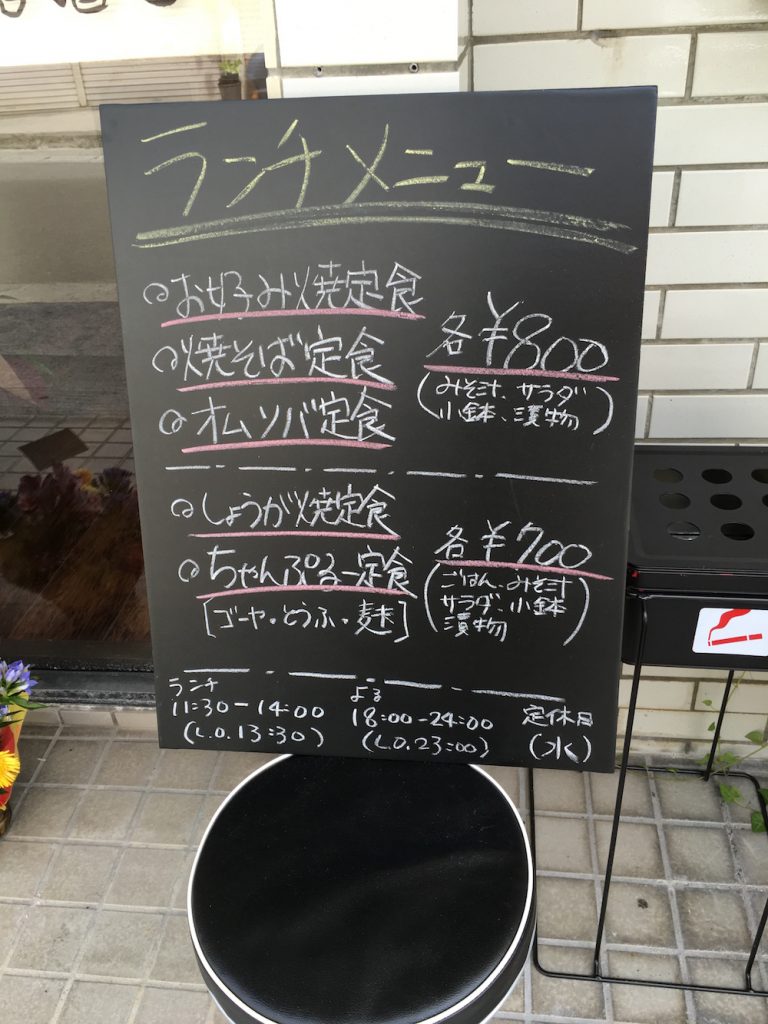 ランチメニュー
お好み焼定食
焼そば定食
オムソバ定食
各¥800
(みそ汁、サラダ
小鉢、漬物)
しょうが焼定食
ちゃんぷるー定食
[ゴーヤ・とうふ・麩]
各¥700
(ごはん、みそ汁
サラダ、小鉢
漬物)
ランチ
11:30-14:00
(L.O.13:30)
よる
18:00-24:00
(L.O.23:00)
定休日
(水)